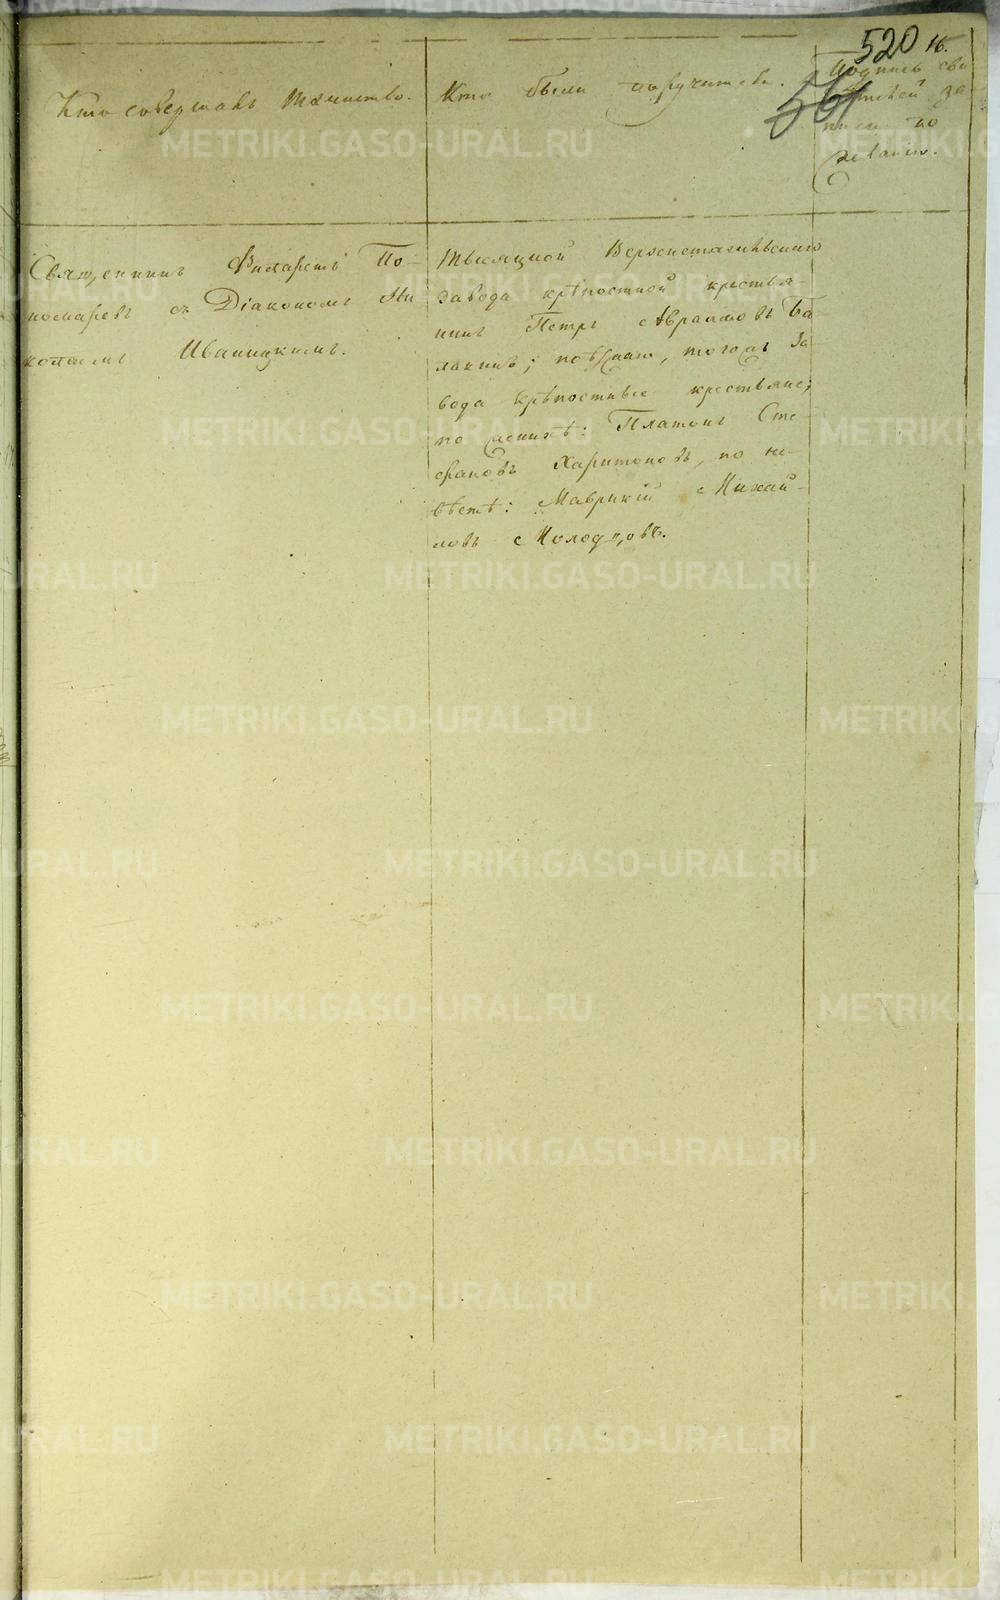 520 16.
561
Кто совершалъ таинство.
Кто были поручители.
Подпись сви
дѣтелей за
писи по
желанію.
Священникъ Виссаріонъ По-
номаревъ съ Діакономъ Ни
колаемъ Иваницкимъ.
Тысяцкой Верхнетагильскаго
завода крѣпостной крестья-
нинъ Петръ Аврамовъ Ба-
лакинъ; поѣзжане, тогожъ За
вода крѣпостные крестьяне;
по женихѣ: Платонъ Сте-
фановъ Харитоновъ, по не-
вѣстѣ: Маврикій Михай-
ловъ Молодцовъ.
METRIKI.GASO-URAL.RU